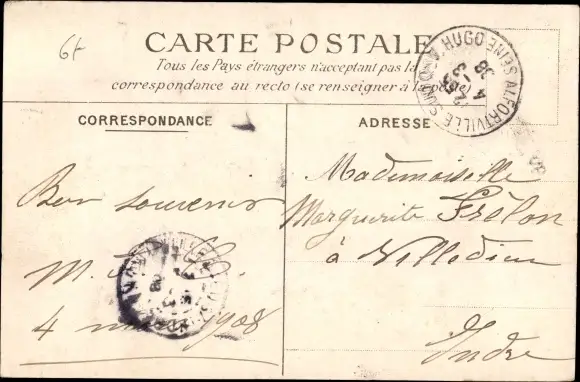 6f
CARTE POSTALE
Tous les Pays étrangers n'acceptent pas la
correspondance au recto (se renseigner à la poste)
ALFORTVILLE SEINE
HUGO
4 - 3
08
CORRESPONDANCE
ADRESSE
Bon souvenir
M.
4 mars 1908
Mademoiselle
Marguerite Frélon
à Villedieu
Indre